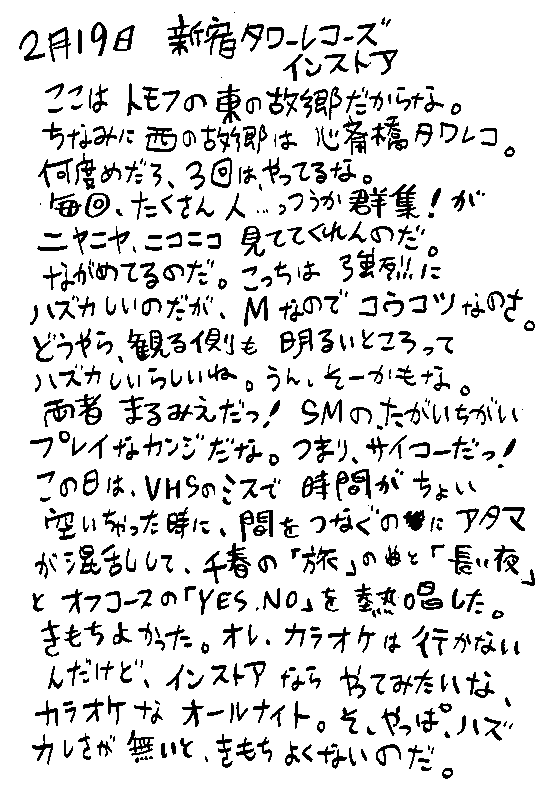 2月19日 新宿タワーレコーズ
インストア
ここは トモフの東の故郷だからな。
ちなみに西の故郷は 心斎橋タワレコ。
何度めだろ、3回は、やってるな。
毎回、たくさん人…っつうか群集!が
ニヤニヤ、ニコニコ 見ててくれんのだ。
ながめてるのだ。こっちは 強烈に
ハズカしいのだが、Mなので コウコツなのさ。
どうやら、観る側も 明るいところって
ハズカしいらしいね。うん、そーかもな。
両者 まるみえだっ! SMの、たがいちがい
プレイなカンジだな。つまり、サイコーだっ!
この日は、VHSのミスで 時間が ちょい
空いちゃった時に、間をつなぐのに アタマ
が混乱しして、千春の「旅」の曲と「長い夜」
と オフコースの「YES,NO」を 熱唱した。
きもちよかった。オレ、カラオケは 行かない
んだけど、インストア なら やってみたいな、
カラオケな オールナイト。そ、やっぱ、ハズ
カしさが 無いと、きもち よくないのだ。